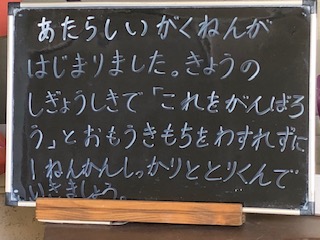 あたらしいがくねんが
はじまりました。きょうの
しぎょうしきで「これをがんばろ
う」とおもうきもちをわすれずに
1ねんかんしっかりととりくんで
いきましょう。